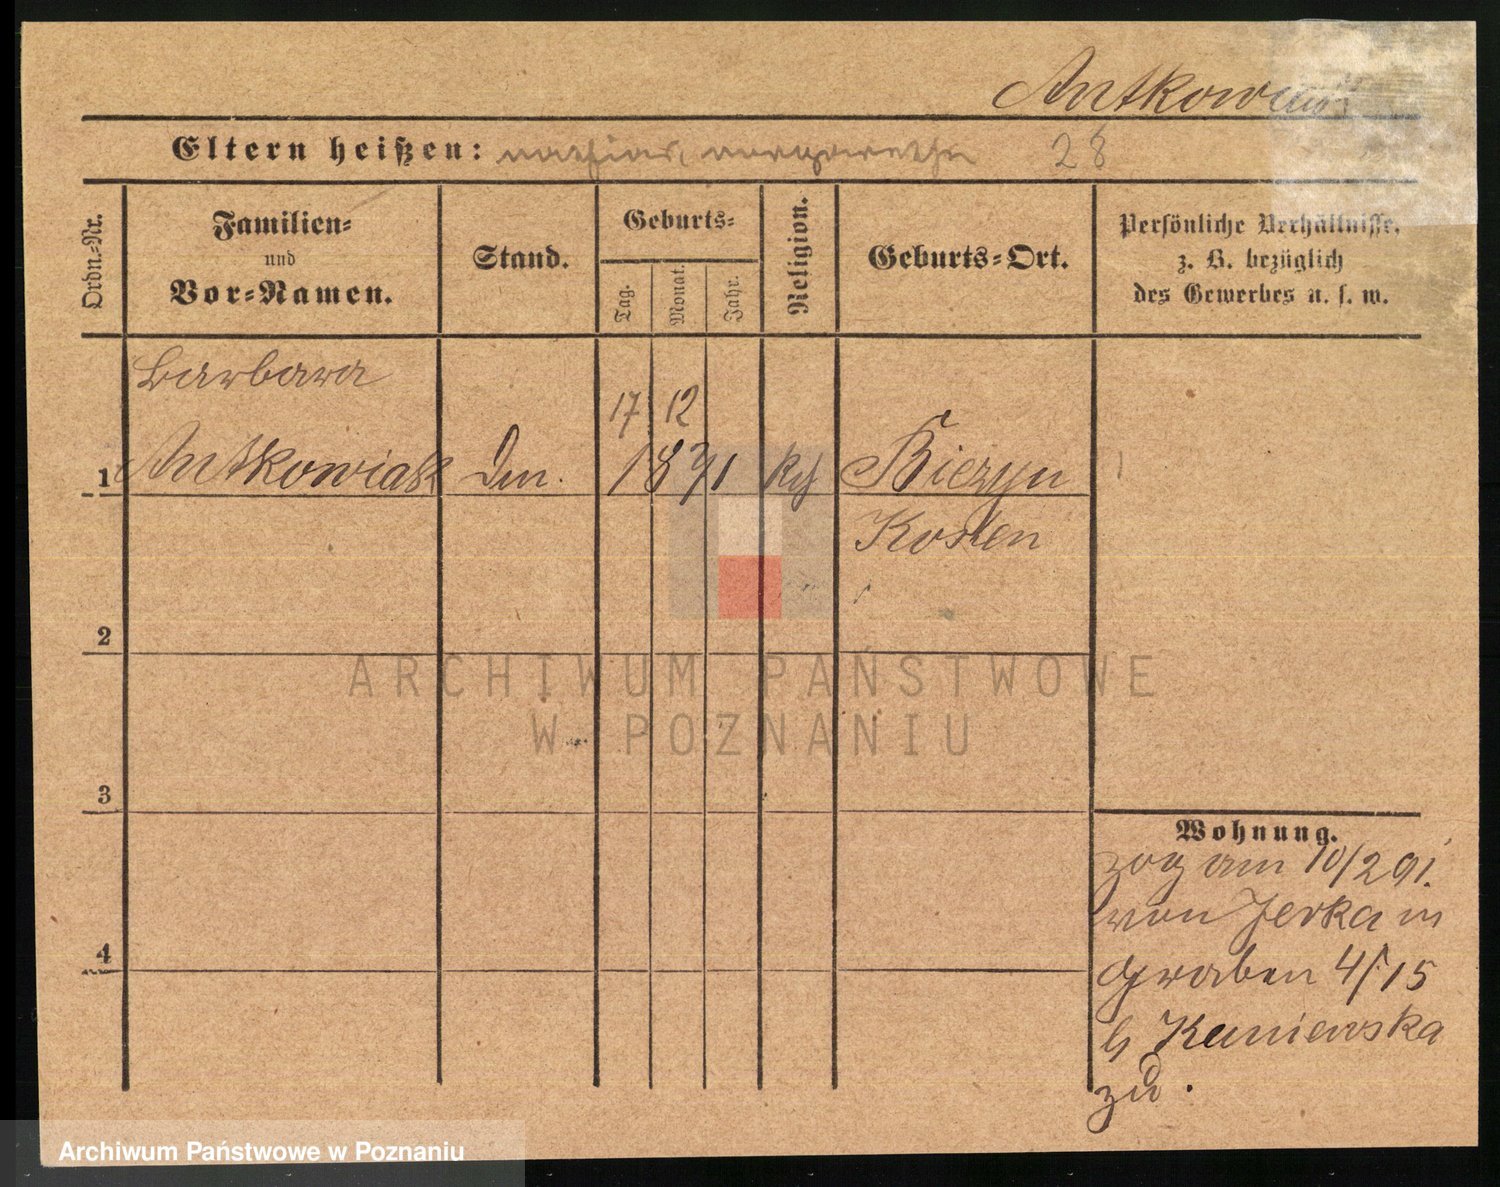 Antkowiak
Eltern heißen: Mathias, Margarethe 28
Ordn.-Nr.
Familien-
und
Vor-Namen.
Stand.
Geburts-
Tag.
Monat.
Jahr.
Religion.
Geburts-Ort.
Persönliche Verhältnisse,
z. B. bezüglich
des Gewerbes u. s. w.
Barbara
17 12
1 Antkowiak 1871 Kth Bieżyn
Kosten
2
3
4
Wohnung.
zog am 10/2 91.
von Jerka in
Graben 4/15
b Kaniewska
zu.
ARCHIWUM PAŃSTWOWE
W POZNANIU
Archiwum Państwowe w Poznaniu